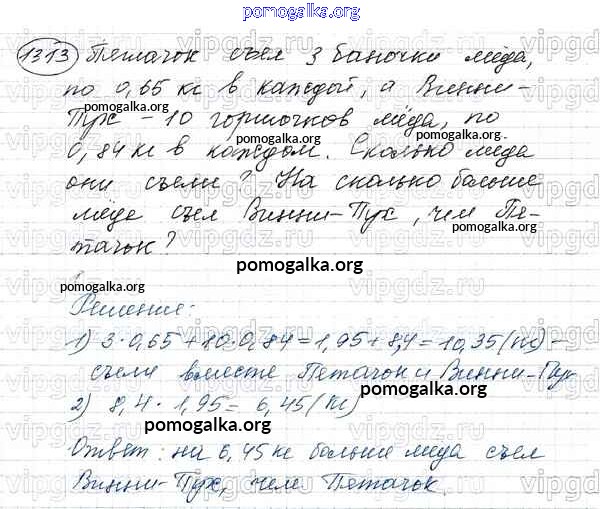 pomogalka.org
1313 Пятачок съел 3 баночки мёда,
по 0,65 кг в каждой, а Винни-
Пух - 10 горшочков мёда, по
0,84 кг в каждом. Сколько мёда
они съели? На сколько больше
мёда съел Винни-Пух, чем Пя-
тачок?
pomogalka.org
Решение:
1) 3·0,65+10·0,84=1,95+8,4=10,35(кг)-
съели вместе Пятачок и Винни-Пух
pomogalka.org
2) 8,4·1,95=6,45(кг)
pomogalka.org
Ответ: на 6,45 кг больше мёда съел
Винни-Пух, чем Пятачок.
pomogalka.org
vipgdz.ru